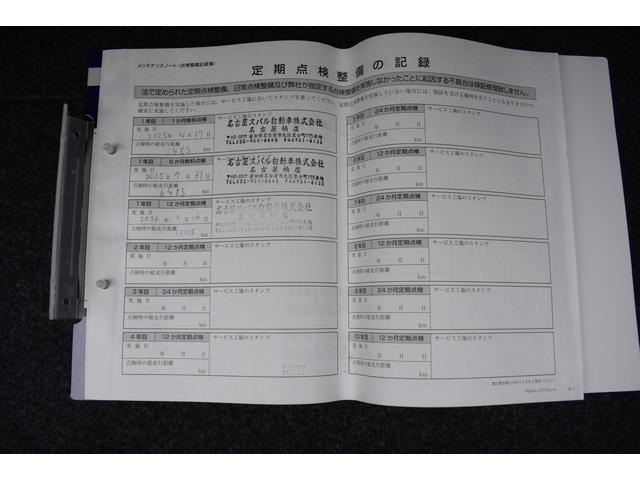 メンテナンスノート(点検整備記録簿)
定期点検整備の記録
法で定められた定期点検整備、日常点検整備及び弊社が指定する点検整備を実施しなかったことに起因する不具合は保証修理致しません。
定期点検整備を実施した場合には、サービス工場においてスタンプを貰ってください。定期点検整備を実施していない場合には、保証を受ける権利を失うことになりますので、
確実に実施してください。
1年目 1か月無料点検
サービス工場のスタンプ
実施日
2025年4月27日
点検時の総走行距離
485
名古屋スバル自動車株式会社
名古屋楠店
1年目 6か月無料点検
サービス工場のスタンプ
実施日
2025年7月31日
点検時の総走行距離
6485
km
名古屋スバル自動車株式会社
名古屋楠店
1年目 12か月定期点検
サービス工場のスタンプ
実施日
2026年2月16日
点検時の総走行距離
km
2年目 12か月定期点検
サービス工場のスタンプ
実施日
年 月 日
点検時の総走行距離
km
3年目 24か月定期点検
サービス工場のスタンプ
実施日
年 月 日
点検時の総走行距離
km
4年目 12か月定期点検
サービス工場のスタンプ
実施日
年 月 日
点検時の総走行距離
km
24か月定期点検
サービス工場のスタンプ
実施日
年 月 日
点検時の総走行距離
km
12か月定期点検
サービス工場のスタンプ
実施日
年 月 日
点検時の総走行距離
km
7年目 24か月定期点検
サービス工場のスタンプ
実施日
年 月 日
点検時の総走行距離
km
12か月定期点検
サービス工場のスタンプ
実施日
年 月 日
点検時の総走行距離
km
24か月定期点検
サービス工場のスタンプ
実施日
年 月 日
点検時の総走行距離
km
10年目 12か月定期点検
サービス工場のスタンプ
実施日
年 月 日
点検時の総走行距離
km